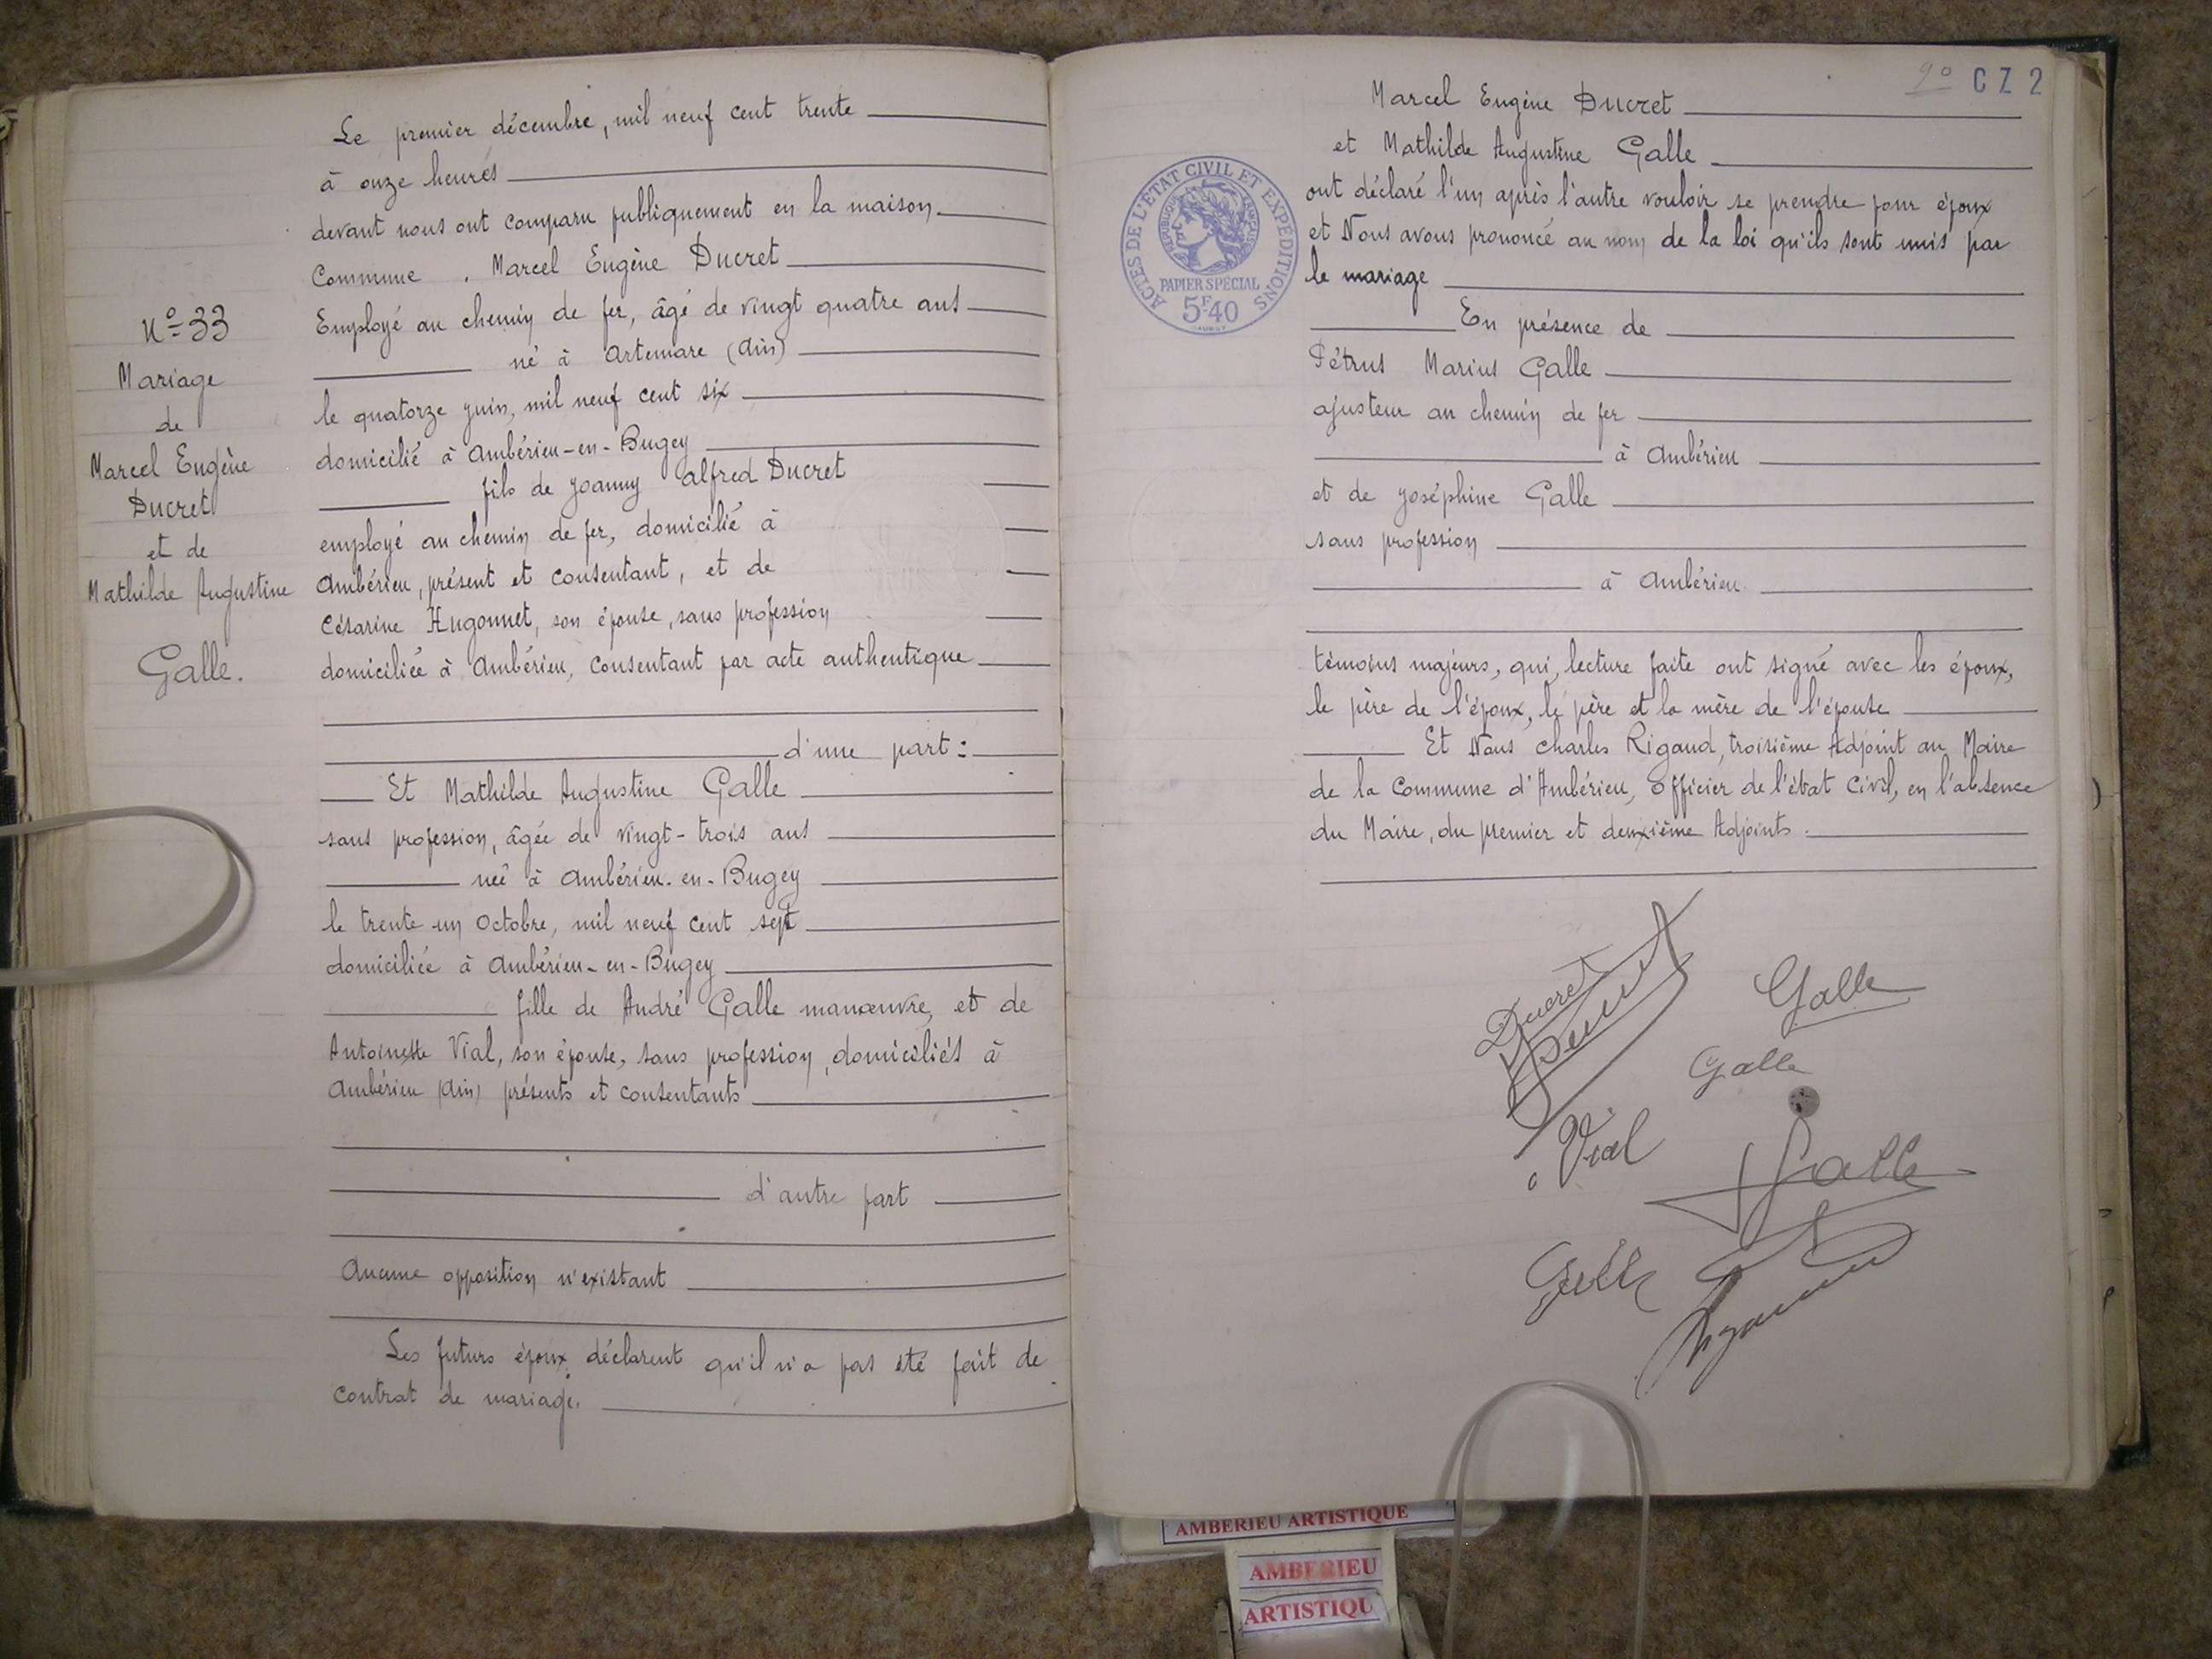 Le premier décembre, mil neuf cent trente
à onze heures
devant nous ont comparu publiquement en la maison
Commune . Marcel Eugène Ducret
Employé au chemin de fer, âgé de vingt quatre ans
né à Artemare (Ain)
le quatorze juin, mil neuf cent six
domicilié à Ambérieu-en-Bugey
fils de Joanny Alfred Ducret
employé au chemin de fer, domicilié à
Ambérieu, présent et consentant, et de
Césarine Hugonnet, son épouse, sans profession
domiciliée à Ambérieu, consentant par acte authentique
d'une part :
Et Mathilde Augustine Galle
sans profession, âgée de vingt-trois ans
née à Ambérieu-en-Bugey
le trente un Octobre, mil neuf cent sept
domiciliée à Ambérieu-en-Bugey
fille de André Galle manœuvre, et de
Antoinette Vial, son épouse, sans profession, domiciliés à
Ambérieu (Ain) présents et consentants
d'autre part
Aucune opposition n'existant
Les futurs époux déclarent qu'il n'a pas été fait de
contrat de mariage.
N° 33
Mariage
de
Marcel Eugène
Ducret
et de
Mathilde Augustine
Galle.
9° CZ 2
Marcel Eugène Ducret
et Mathilde Augustine Galle
ont déclaré l'un après l'autre vouloir se prendre pour époux
et Nous avons prononcé au nom de la loi qu'ils sont unis par
le mariage
En présence de
Pétrus Marius Galle
ajusteur au chemin de fer
à Ambérieu
et de Joséphine Galle
sans profession
à Ambérieu
témoins majeurs, qui, lecture faite ont signé avec les époux,
le père de l'époux, le père et la mère de l'épouse
Et Nous Charles Rigaud, troisième Adjoint au Maire
de la Commune d'Ambérieu, Officier de l'état Civil, en l'absence
du Maire, du premier et deuxième Adjoints.
ACTES DE L'ÉTAT CIVIL ET EXPÉDITIONS
RÉPUBLIQUE FRANÇAISE
PAPIER SPÉCIAL
5F40
Ducret
Ducret
Galle
Galle
Vial
Galle
Galle
AMBERIEU ARTISTIQUE
AMBERIEU
ARTISTIQU